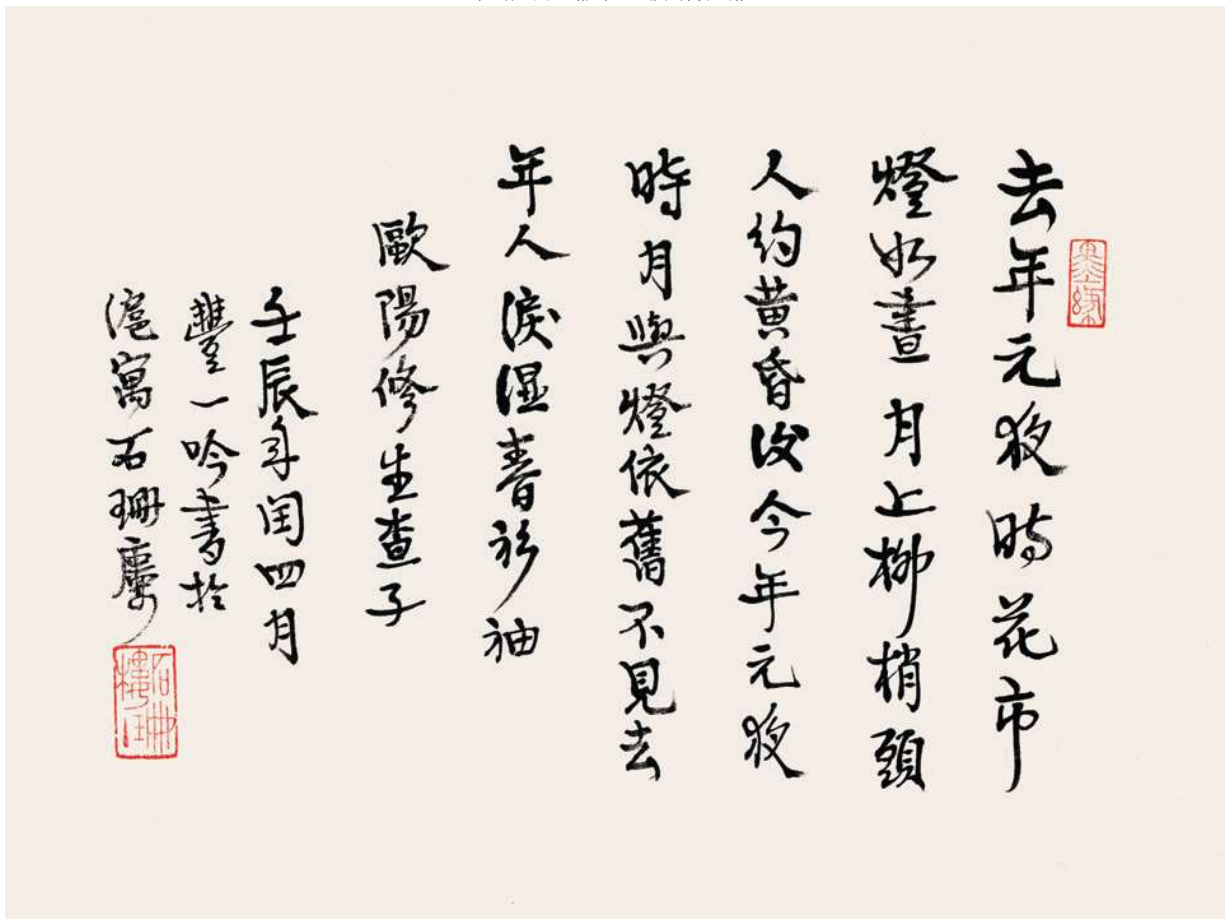 去年元夜時花市
燈如晝月上柳梢頭
人約黄昏後今年元夜
時月與燈依舊不見去
年人淚濕春衫袖
歐陽修生查子
壬辰年闰四月
豐一吟書於
滬寓石珊廔
墨缘
石珊樓